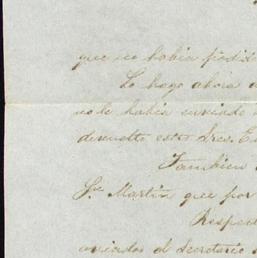 que no habia podido
Lo hago ahora
no le habia enviado
devuelto estos Sres. E
Tambien
Sn. Martin que por
Respec
enviados al secretario